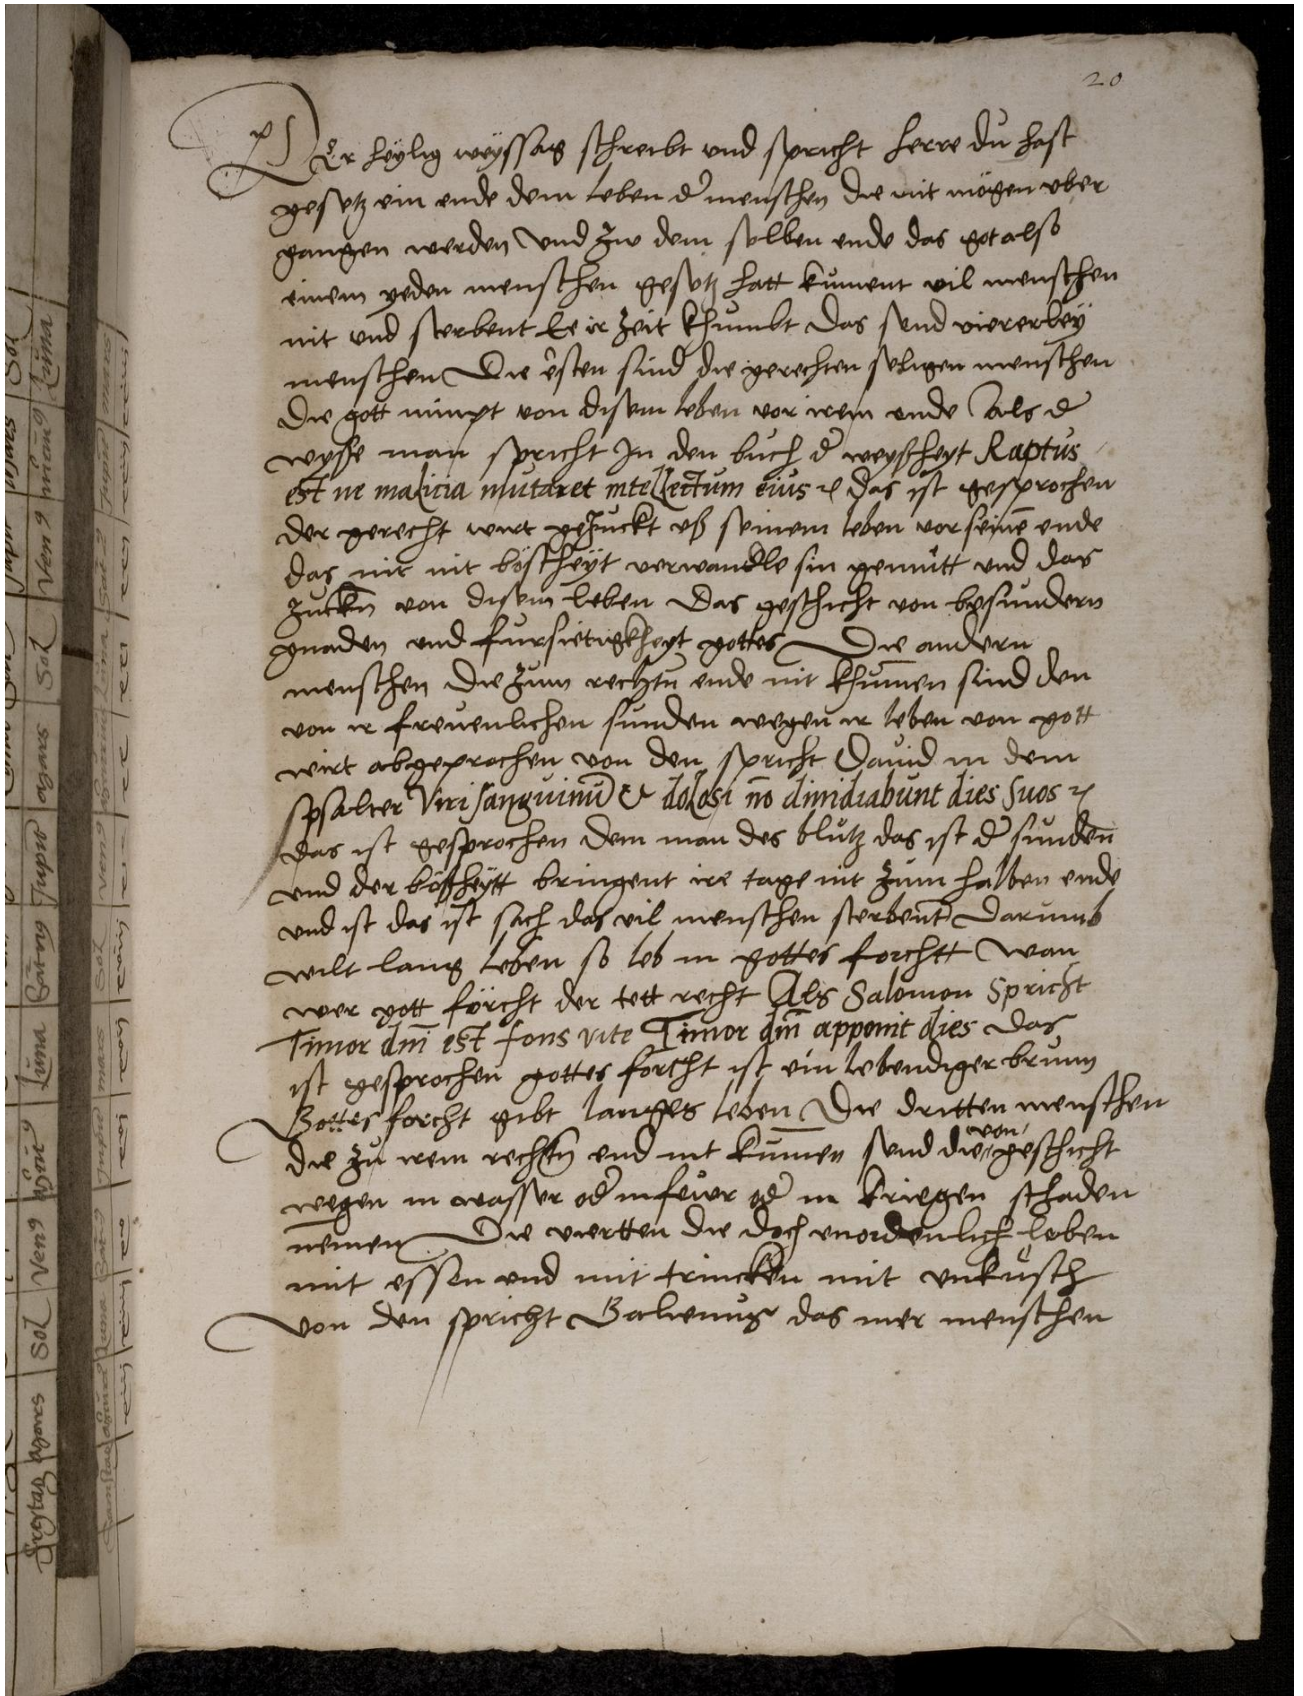 20
Der heylig weyssag schreibt und spricht herre du hast
gesetz ein ende dem leben der menschen die nit mögen uber
gangen werden Und zw dem selben ende das got also
einem yeden menschen gesetz hatt kument vil menschen
nit und sterbent Ee ir zeit khumbt Das send viererley
menschen Die ersten sind die gerechten seligen menschen
Die gott nimpt von disem leben vor irem ende Als der
wysse man spricht In den buch der weyßheyt Raptus
est ne malicia mutaret intellectum eius das ist gesprochen
der gerecht wirt gezuckt uß seinem leben vor seinē ende
das nit mit boßheyt verwandle sin gemütt und das
zuckn̄ von disem leben Das geschicht von besundern
gnaden und fursietigkheyt gottes Die andern
menschen Die zum rechtn̄ ende nit khum̄en sind den
von ir freuenlichen sunden wegen ir leben von gott
wirt abgeprochen von den spricht David in dem
psalter Viri sanguinū & dolosi nō dimidiabunt dies suos
das ist gesprochen dem man des blutz das ist der sunden̄
und der boßheytt bringent ire tage nit zum halben ende
und ist das ist sach das vil menschen sterbent Darumb
wilt lang leben so leb in gottes forchtt wan
wer gott förcht der tett recht Als Salomon Spricht
Timor dn̄i est fons vite Timor dn̄i apponit dies das
ist gesprochen gottes forcht ist ein lebendiger brunn
Gottes forcht gibt langes leben Die dritten menschen
die zu irem rechtn̄ end nit kum̄en send die von geschicht
wegen in wasser oder in feuer oder in kriegen schaden
nemen Die viertten die doch unordenlich leben
mit essen und mit trincken mit unküsch
Von den spricht Galienus das mer menschen
Freytag Sol Luna Jupit Sol
Samstag Luna Sol mars